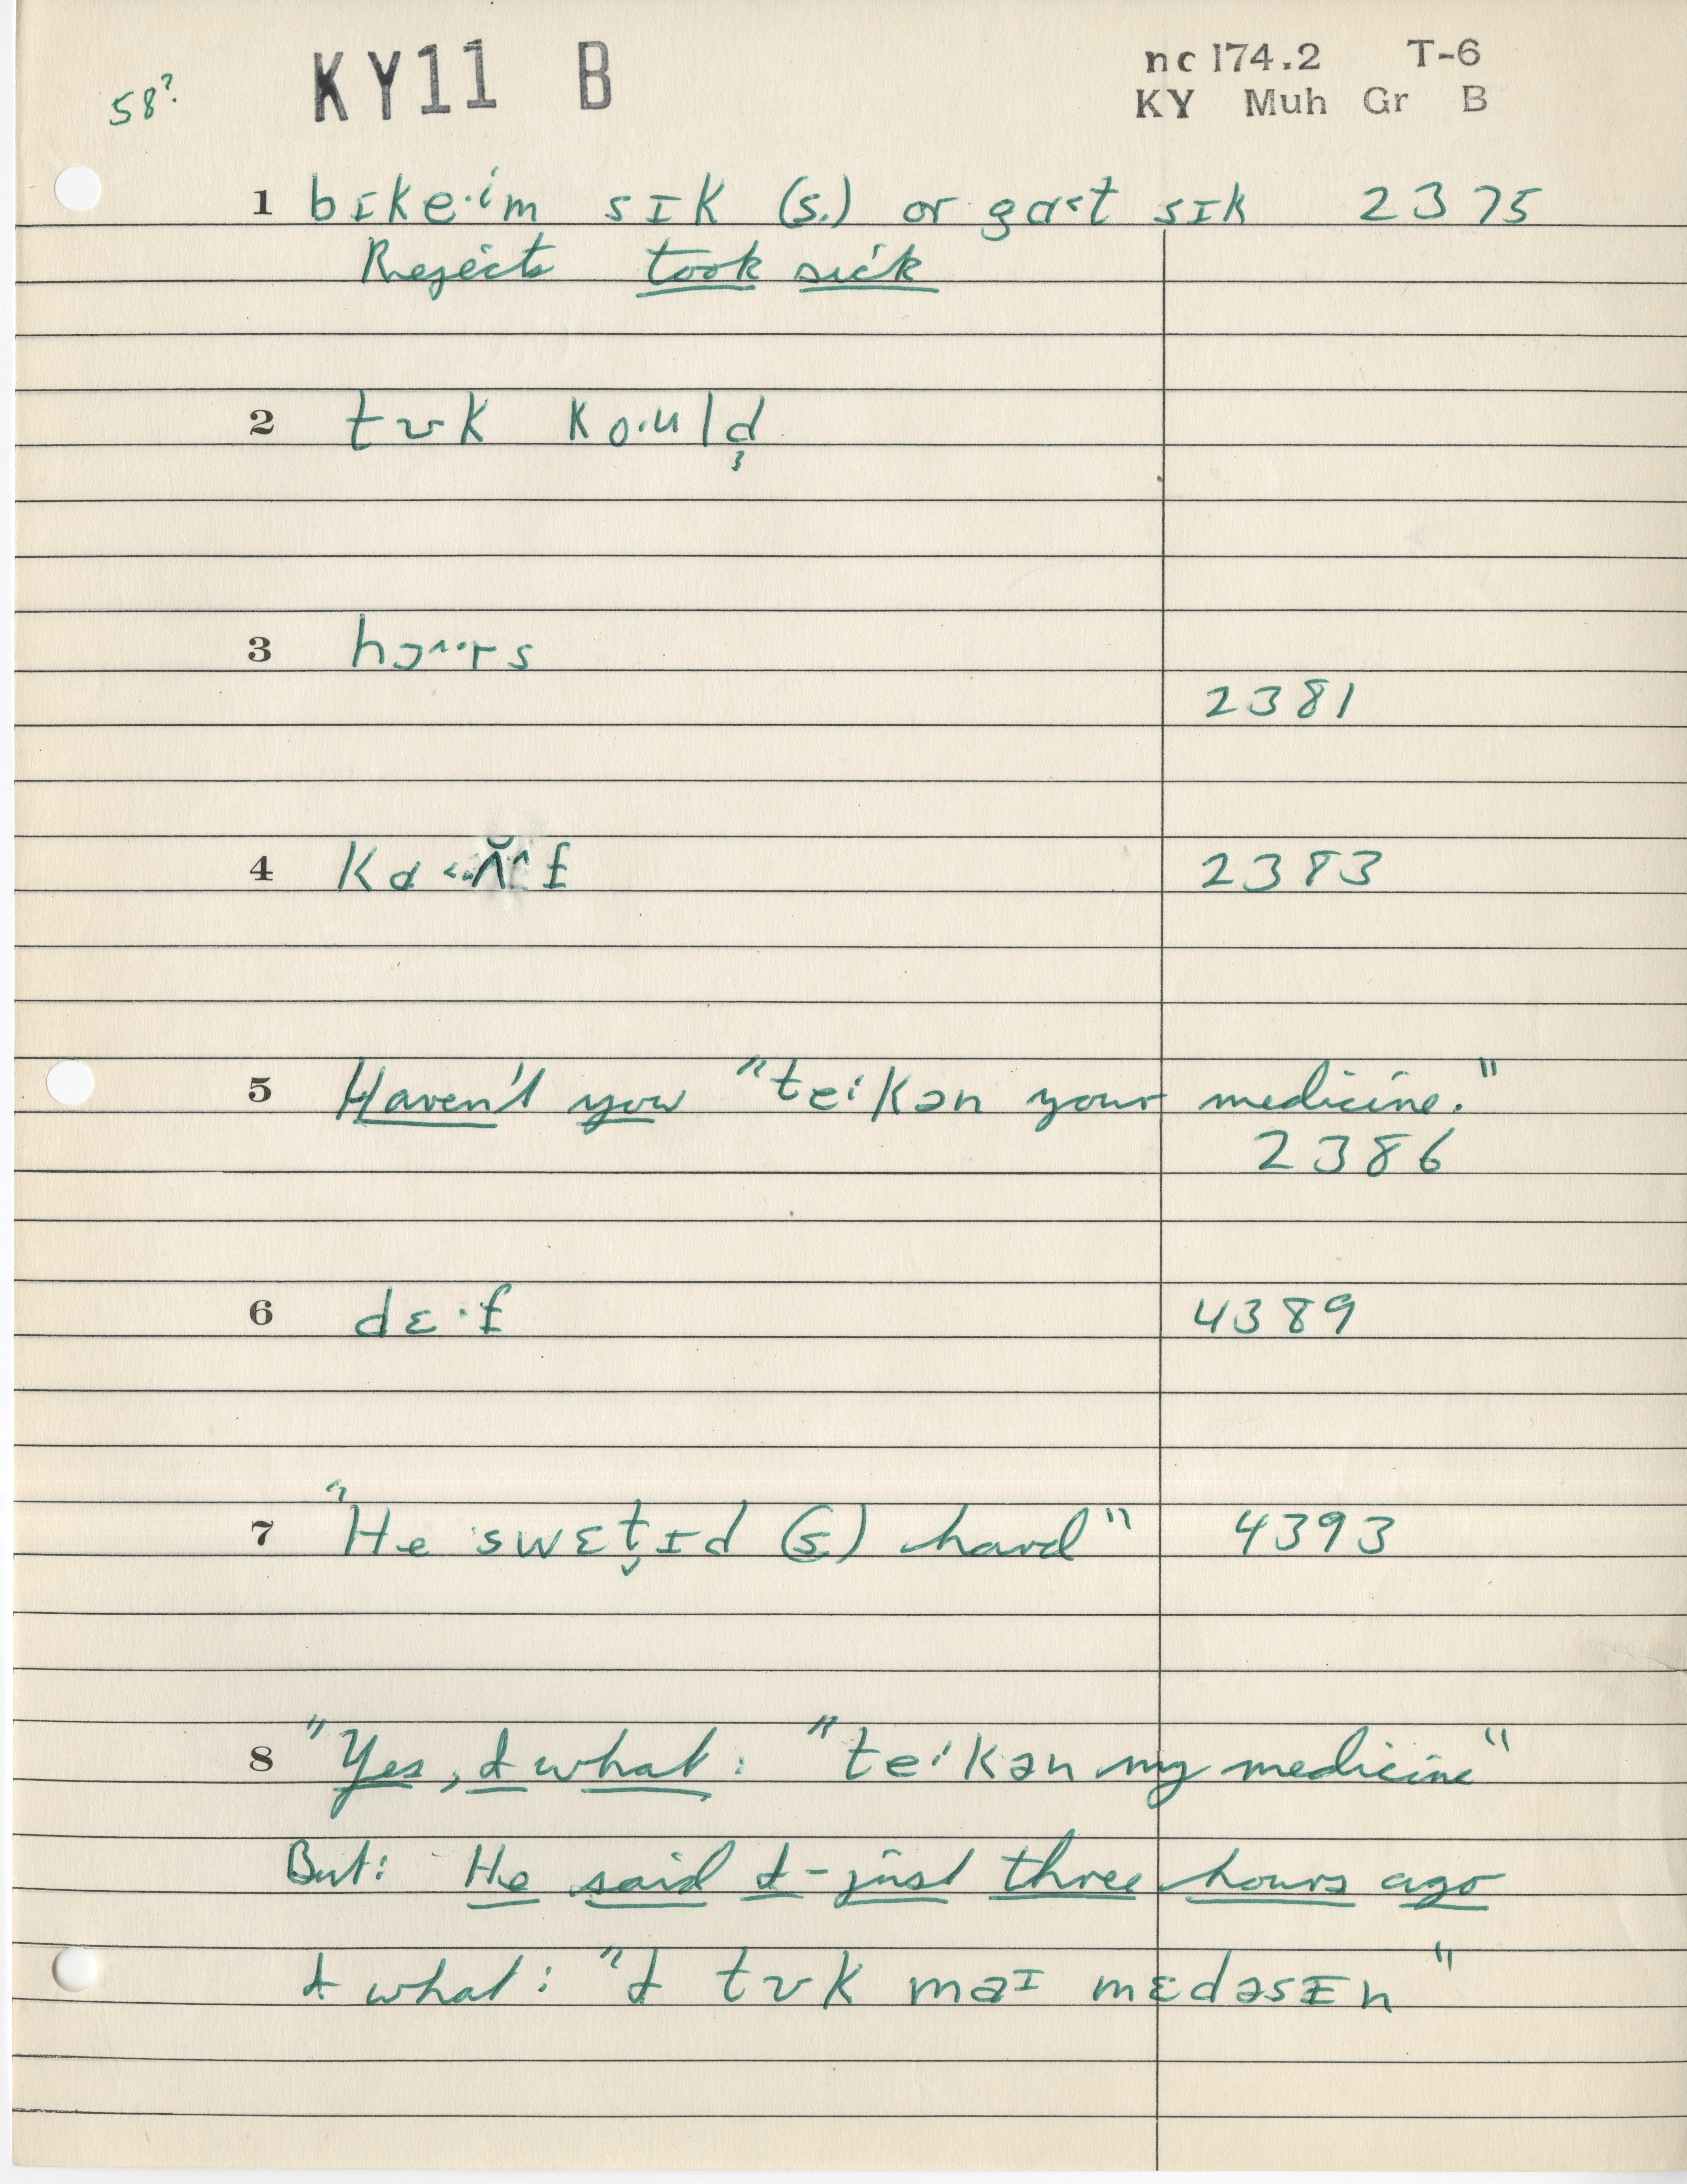 58?
KY11 B
nc 174.2 T-6
KY Muh Gr B
1 bɪke·im sɪk (s.) or gɑ˂t sɪk 2375
Rejects took sick
2 tʊk ko·uld̦
3 hɔ^··rs
2381
4 2383
5 Haven't you "teikən your medicine."
2386
6 dɛ·f 4389
7 "He swɛt̬ɪd (s.) hard" 4393
8 "Yes, I what: "teikən my medicine"
But: He said I - just three hours ago
I what: "I tʊk maɪ mɛdəsɪn"